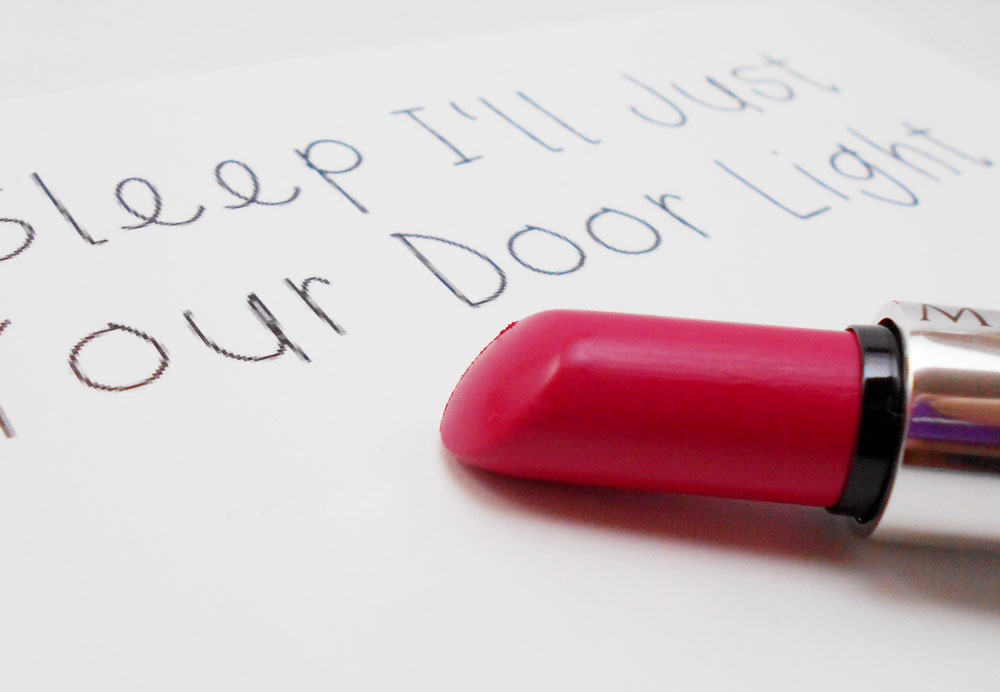 Sleep I'll Just
Your Door Light
M